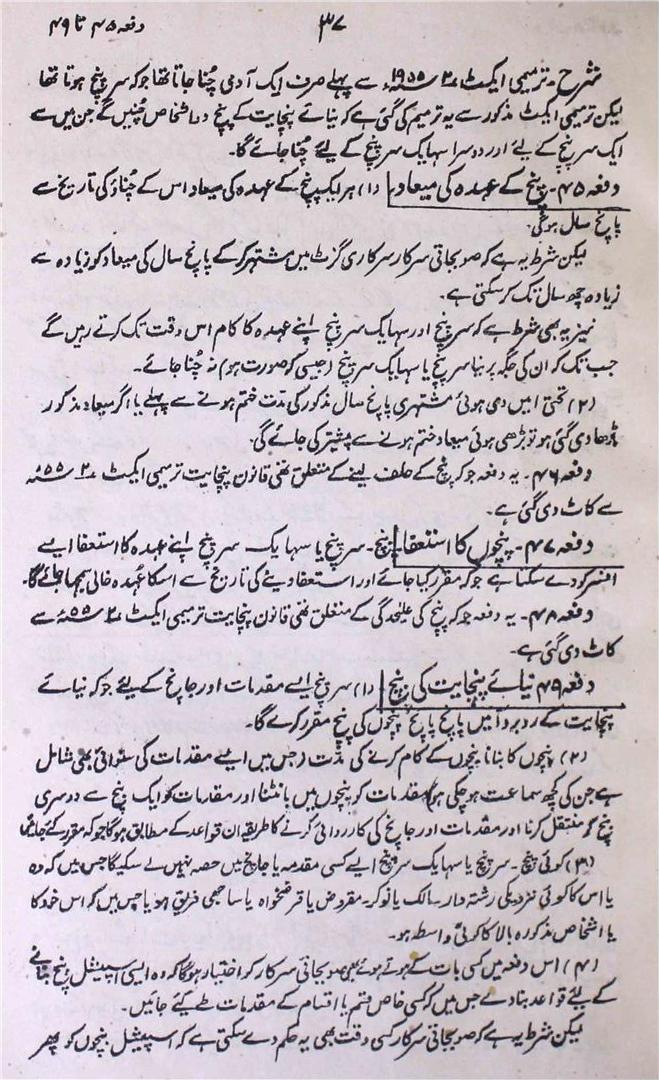 ۳۷
دفعہ ۴۵ تا ۴۹
شرح۔ ترمیمی ایکٹ ۲ ۱۹۵۵ء سے پہلے صرف ایک آدمی چُنا جاتا تھا جو کہ سرپنچ ہوتا تھا
لیکن ترمیمی ایکٹ مذکور سے یہ ترمیم کی گئی ہے کہ نیائے پنچایت کے پنچ دو اشخاص چُنیں گے جن میں سے
ایک سرپنچ کے لئے اور دوسرا سہایک سرپنچ کے لئے چُنا جائے گا۔
دفعہ ۴۵۔ پنچ کے عہدہ کی میعاد (۱) ہر ایک پنچ کے عہدہ کی میعاد اس کے چُناؤ کی تاریخ سے
پانچ سال ہوگی۔
لیکن شرط یہ ہے کہ صوبجاتی سرکار سرکاری گزٹ میں مشتہر کر کے پانچ سال کی میعاد کو زیادہ سے
زیادہ چھ سال تک کر سکتی ہے۔
نیز یہ بھی شرط ہے کہ سرپنچ اور سہایک سرپنچ اپنے عہدہ کا کام اس وقت تک کرتے رہیں گے
جب تک کہ ان کی جگہ پر نیا سرپنچ یا سہایک سرپنچ (جیسی کہ صورت ہو) نہ چُنا جائے۔
(۲) تحتی ۱ میں دی ہوئی مشتہری پانچ سال مذکور کی مدت ختم ہونے سے پہلے یا اگر میعاد مذکور
بڑھا دی گئی ہو تو بڑھی ہوئی میعاد ختم ہونے سے پیشتر کی جائے گی۔
دفعہ ۴۶۔ یہ دفعہ جو کہ پنچ کے حلف لینے کے متعلق تھی قانون پنچایت ترمیمی ایکٹ ۲ ۵۵ء
سے کاٹ دی گئی ہے۔
دفعہ ۴۷۔ پنچوں کا استعفا پنچ۔ سرپنچ یا سہایک سرپنچ اپنے عہدہ کا استعفا ایسے
افسر کو دے سکتا ہے جو کہ مقرر کیا جائے اور استعفا دینے کی تاریخ سے اسکا عہدہ خالی سمجھا جائے گا۔
دفعہ ۴۸۔ یہ دفعہ جو کہ پنچ کی علیحدگی کے متعلق تھی قانون پنچایت ترمیمی ایکٹ ۲ ۵۵ء سے
کاٹ دی گئی ہے۔
دفعہ ۴۹ نیائے پنچایت کی بنچ (۱) سرپنچ ایسے مقدمات اور جانچ کے لیئے جو کہ نیائے
پنچایت کے روبرو آئیں پانچ پانچ پنچوں کی بنچ مقرر کرے گا۔
(۲) بنچوں کا بنانا بنچوں کے کام کرنے کی مدّت (جس میں ایسے مقدمات کی سنوائی بھی شامل
ہے جن کی کچھ سماعت ہو چکی ہو) مقدمات کو بنچوں میں بانٹنا اور مقدمات کو ایک بنچ سے دوسری
بنچ کو منتقل کرنا اور مقدمات اور جانچ کی کارروائی کرنے کا طریقہ ان قواعد کے مطابق ہوگا جو کہ مقرر کئے جائیں
(۳) کوئی پنچ۔ سرپنچ یا سہایک سرپنچ ایسے کسی مقدمہ یا جانچ میں حصہ نہیں لے سکیگا جس میں کہ وہ
یا اس کا کوئی نزدیکی رشتہ دار۔ مالک یا نوکر۔ مقروض یا قرضخواہ یا ساجھی فریق ہو یا جس میں کہ اس خود کا
یا اشخاص مذکورہ بالا کا کوئی واسطہ ہو۔
(۴) اس دفعہ میں کسی بات کے ہوتے ہوئے بھی صوبجاتی سرکار کو اختیار ہوگا کہ وہ ایسی اسپیشل بنچ بنانے
کے لئے قواعد بنا دے جس میں کہ کسی خاص قسم یا اقسام کے مقدمات طے کیئے جائیں۔
لیکن شرط یہ ہے کہ صوبجاتی سرکار کسی وقت بھی یہ حکم دے سکتی ہے کہ اسپیشل بنچوں کو پھر